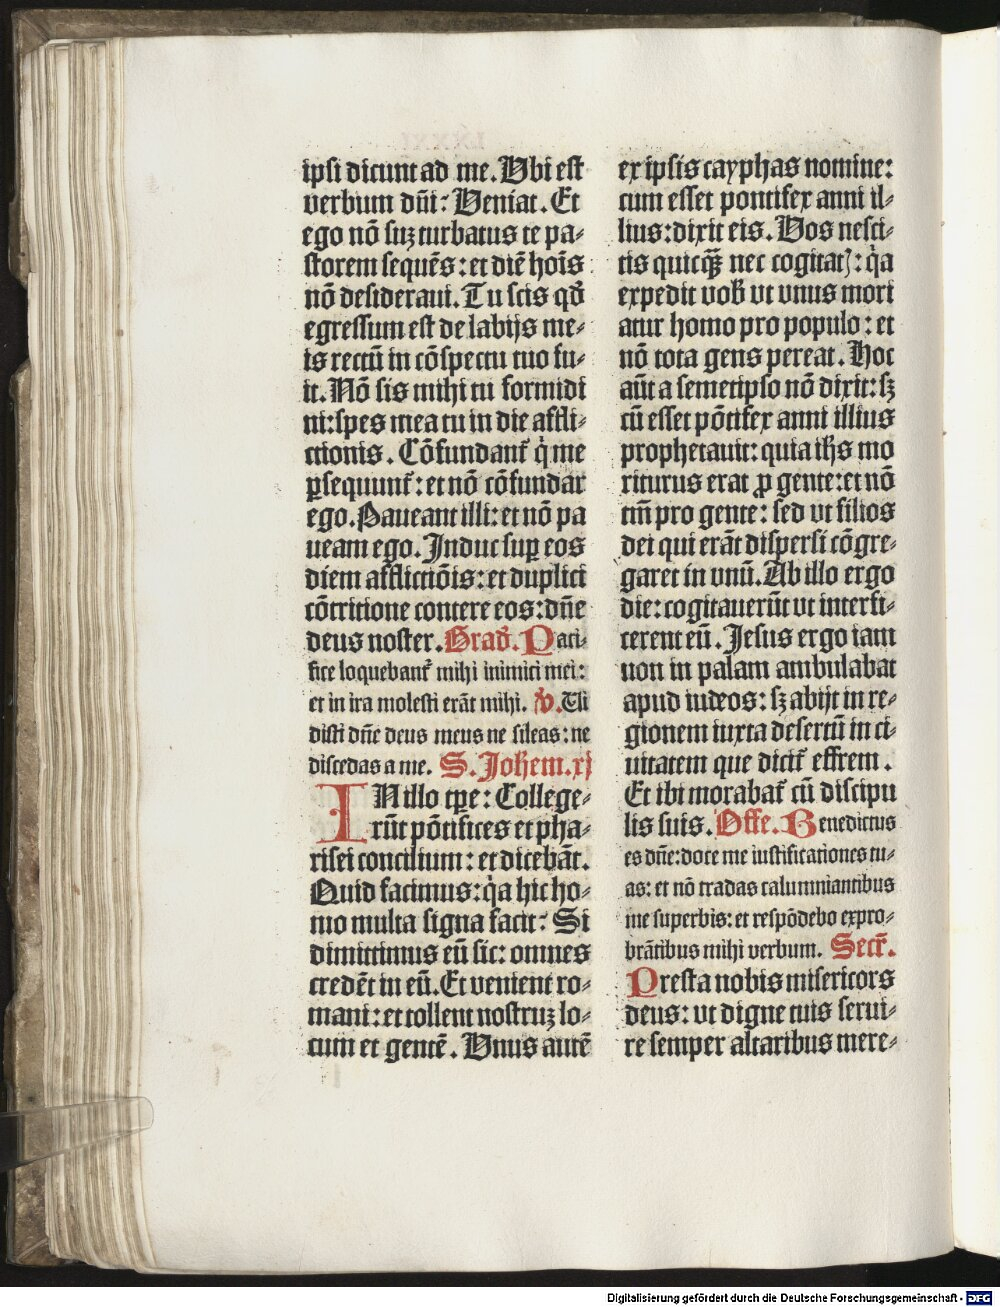 ipsi dicunt ad me. Vbi est
verbum dn̄i: Veniat. Et
ego nō suꝫ turbatus te pa⸗
storem sequēs: et diē hoīs
nō desideraui. Tu scis qđ
egressum est de labijs me⸗
is rectū in cōspectu tuo fu⸗
it. Nō sis mihi tu formidi
ni: spes mea tu in die affli⸗
ctionis. Cōfundant᷑ q̇ me
ꝑsequunt᷑: et nō cōfundar
ego. Paueant illi: et nō pa
ueam ego. Induc suꝑ eos
diem afflictiōis: et duplici
cōtritione contere eos: dn̄e
deus noster. Građ. Paci⸗
fice loquebant᷑ mihi inimici mei:
et in ira molesti erāt mihi. v̇. Ui
disti dn̄e deus meus ne sileas: ne
discedas a me. S. Joħem. xj
IN illo tꝑe: College⸗
rūt pōtifices et pha⸗
risei concilium: et dicebāt.
Quid facimus: q̇a hic ho⸗
mo multa signa facit: Si
dimittimus eū sic: omnes
credēt in eū. Et venient ro⸗
mani: et tollent nostruꝫ lo⸗
cum et gentē. Vnus autē
ex ipsis cayphas nomine:
cum esset pontifex anni il⸗
lius: dixit eis. Vos nesci⸗
tis quicqꝫ̄ nec cogitatꝭ: q̇a
expedit vob̄ vt vnus mori
atur homo pro populo: et
nō tota gens pereat. Hoc
aūt a semetipso nō dixit: sꝫ
cū esset pōtifex anni illius
prophetauit: quia iħs mo
riturus erat ꝓ gente: et nō
tm̄ pro gente: sed vt filios
dei qui erāt dispersi cōgre⸗
garet in vnū. Ab illo ergo
die: cogitauerūt vt interfi⸗
cerent eū. Jesus ergo iam
non in palam ambulabat
apud iudeos: sꝫ abijt in re⸗
gionem iuxta desertū in ci⸗
uitatem que dicit᷑ effrem.
Et ibi morabat᷑ cū discipu
lis suis. Offe. Benedictus
es dn̄e: doce me iustificationes tu⸗
as: et nō tradas calumniantibus
me superbis: et respōdebo expro⸗
brātibus mihi verbum. Secr̄.
Presta nobis misericors
deus: vt digne tuis serui⸗
re semper altaribus mere⸗
Digitalisierung gefördert durch die Deutsche Forschungsgemeinschaft - DFG